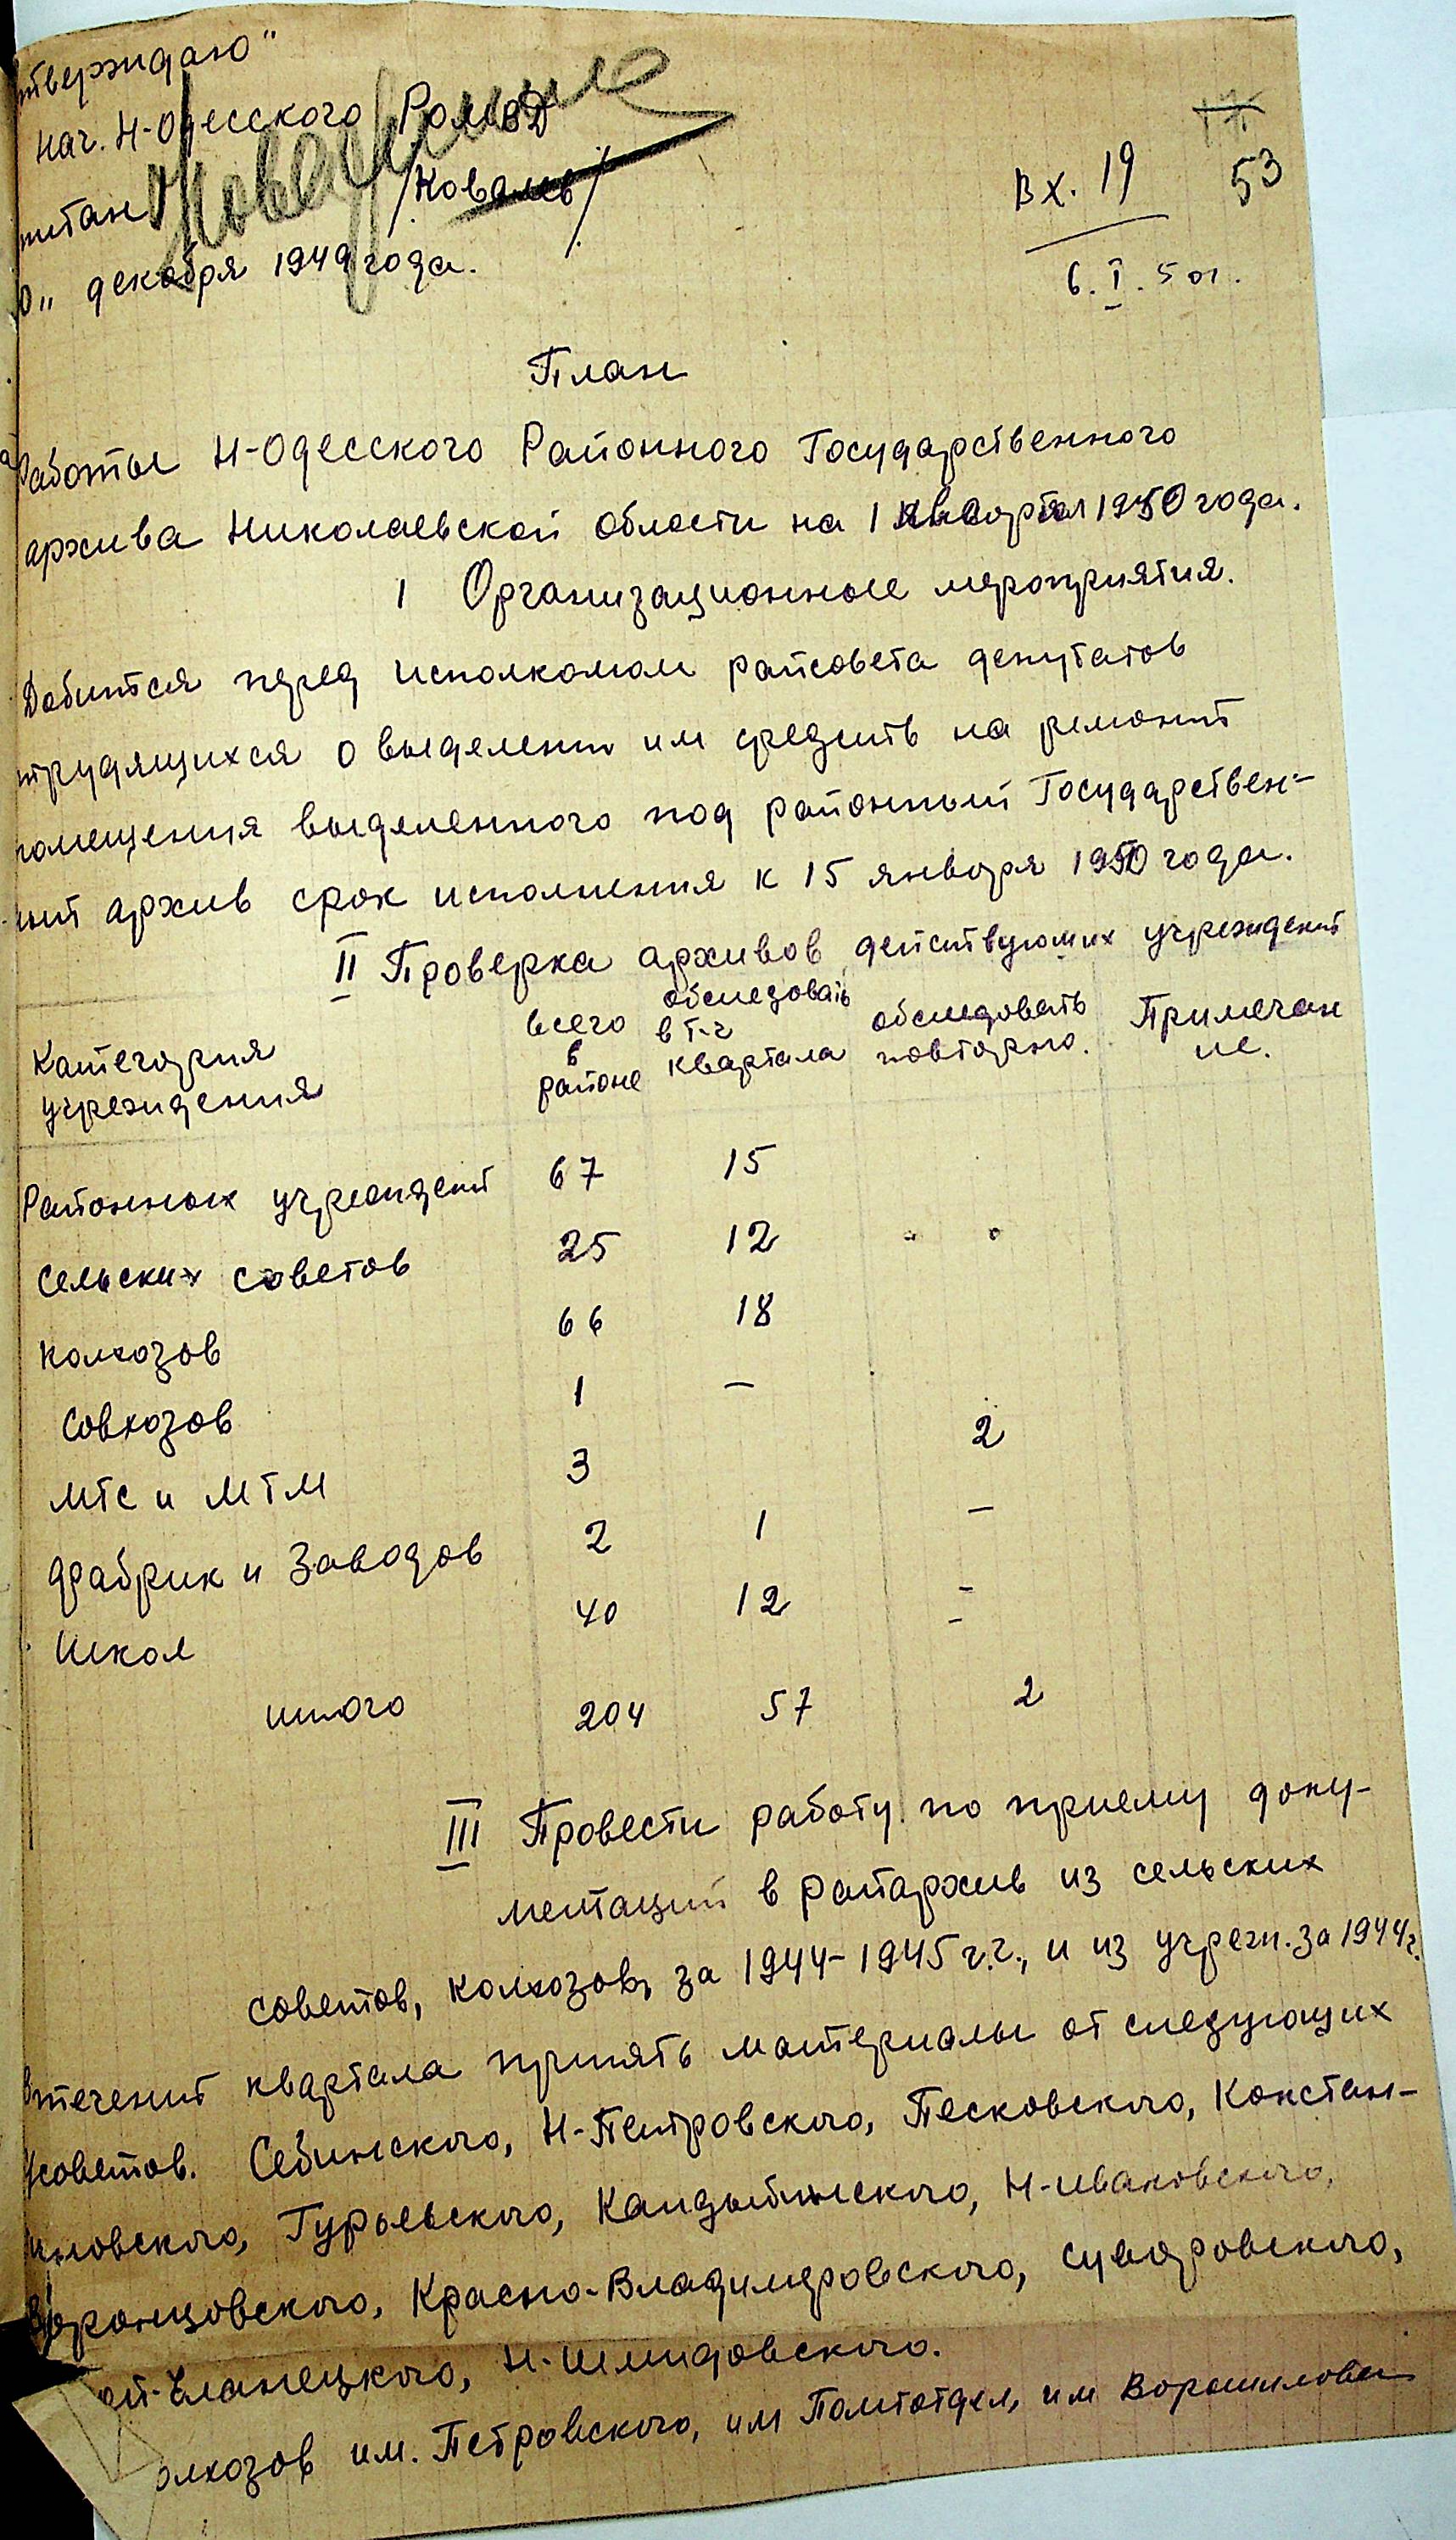 тверждаю"
нач. Н-Одесского РОМВД
питан /Ковалев/
0" декабря 1949 года.
Вх. 19 53
6. I. 50 г.
План
Работы Н-Одесского Районного Государственного
архива Николаевской области на 1 квартал 1950 года.
1 Организационные мероприятия.
Добится перед исполкомом райсовета депутатов
трудящихся о выделении им средств на ремонт
помещения выделенного под районный Государствен-
ный архив срок исполнения к 15 января 1950 года.
II Проверка архивов действующих учреждений
Категория учреждения всего в районе обследовать в т-ч квартала обследовать повторно. Примечание.
Районных учреждений 67 15
Сельских советов 25 12
Колхозов 66 18
Совхозов 1 –
МТС и МТМ 3 2
Фабрик и Заводов 2 1 –
Школ 40 12 –
итого 204 57 2
III Провести работу по приему доку-
ментаций в райархив из сельских
советов, колхозов, за 1944-1945 г.г., и из учреж. за 1944 г.
втечений квартала принять материалы от следующих
советов. Себинского, Н-Петровского, Песковского, Констан-
иновского, Гурьевского, Кандыбинского, Н-Ивановского,
Воронцовского, Красно-Владимеровского, Суворовского,
ой-Еланецкого, Н-Шмидовского.
олхозов им. Петровского, им Политотдел, им Ворошилова